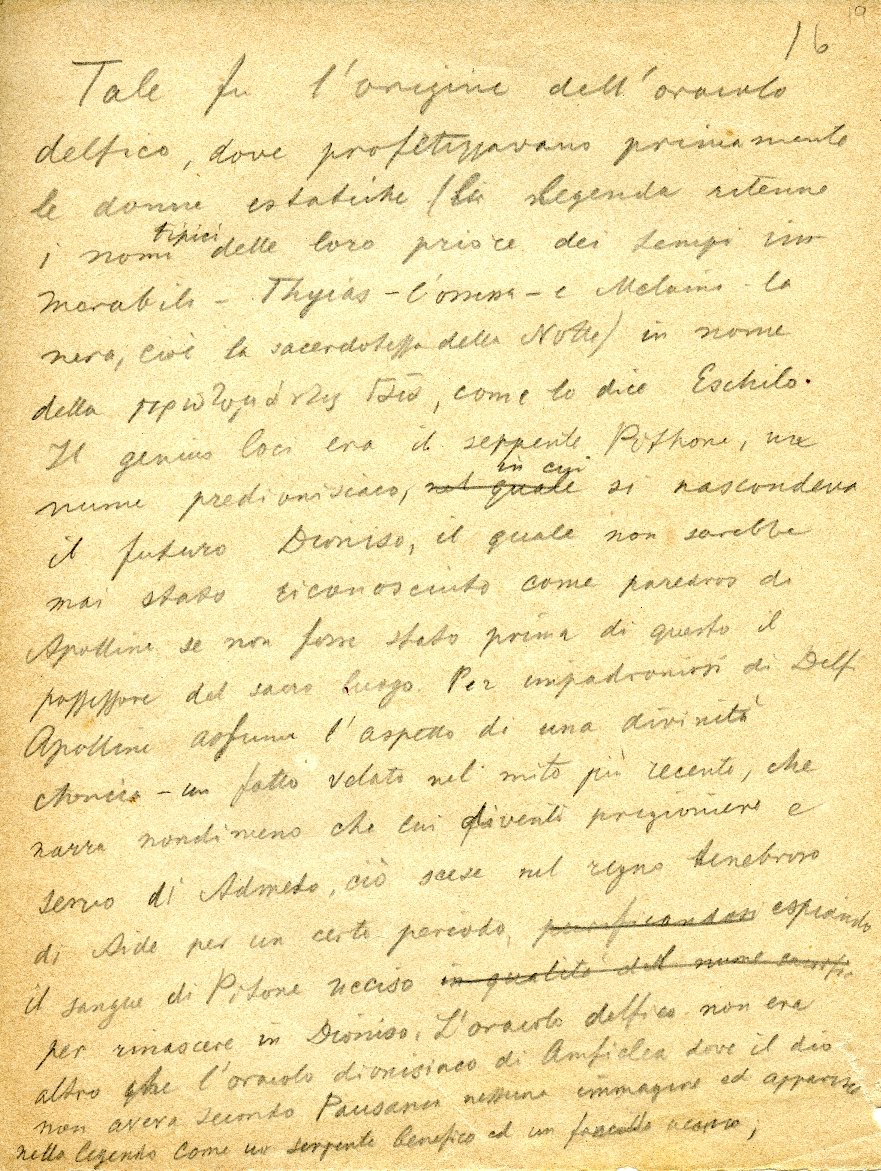 19
16
Tale fu l'origine dell'oracolo
delfico, dove profetizzavano primamente
le donne estatiche (la legenda ritenne
i nomi tipici delle loro prisce dei tempi im
morabili - Thyias - l'ossessa - e Melaina - la
nera, cioè la sacerdotessa della Notte) in nome
della πρωτομάντις Γῆ, come lo dice Eschilo.
Il genius loci era il serpente Pithone, un
nume predionisiaco, nel quale in cui si nascondeva
il futuro Dioniso, il quale non sarebbe
mai stato riconosciuto come paredros di
Apolline se non fosse stato prima di questo il
possessore del sacro luogo. Per impadronirsi di Delfi
Apolline assume l'aspetto di una divinità
chtonica - un fatto velato nel mito più recente, che
narra nondimeno che lui diventi prigioniero e
servo di Admeto, ciò scese nel regno tenebroso
di Aide per un certo periodo, espiando
il sangue di Pitone ucciso in qualità del nume
per rinascere in Dioniso. L'oracolo delfico non era
altro che l'oracolo dionisiaco di Amficlea dove il dio
non aveva secondo Pausania nessuna immagine ed apparisce
nella legenda come un serpente benefico ed un